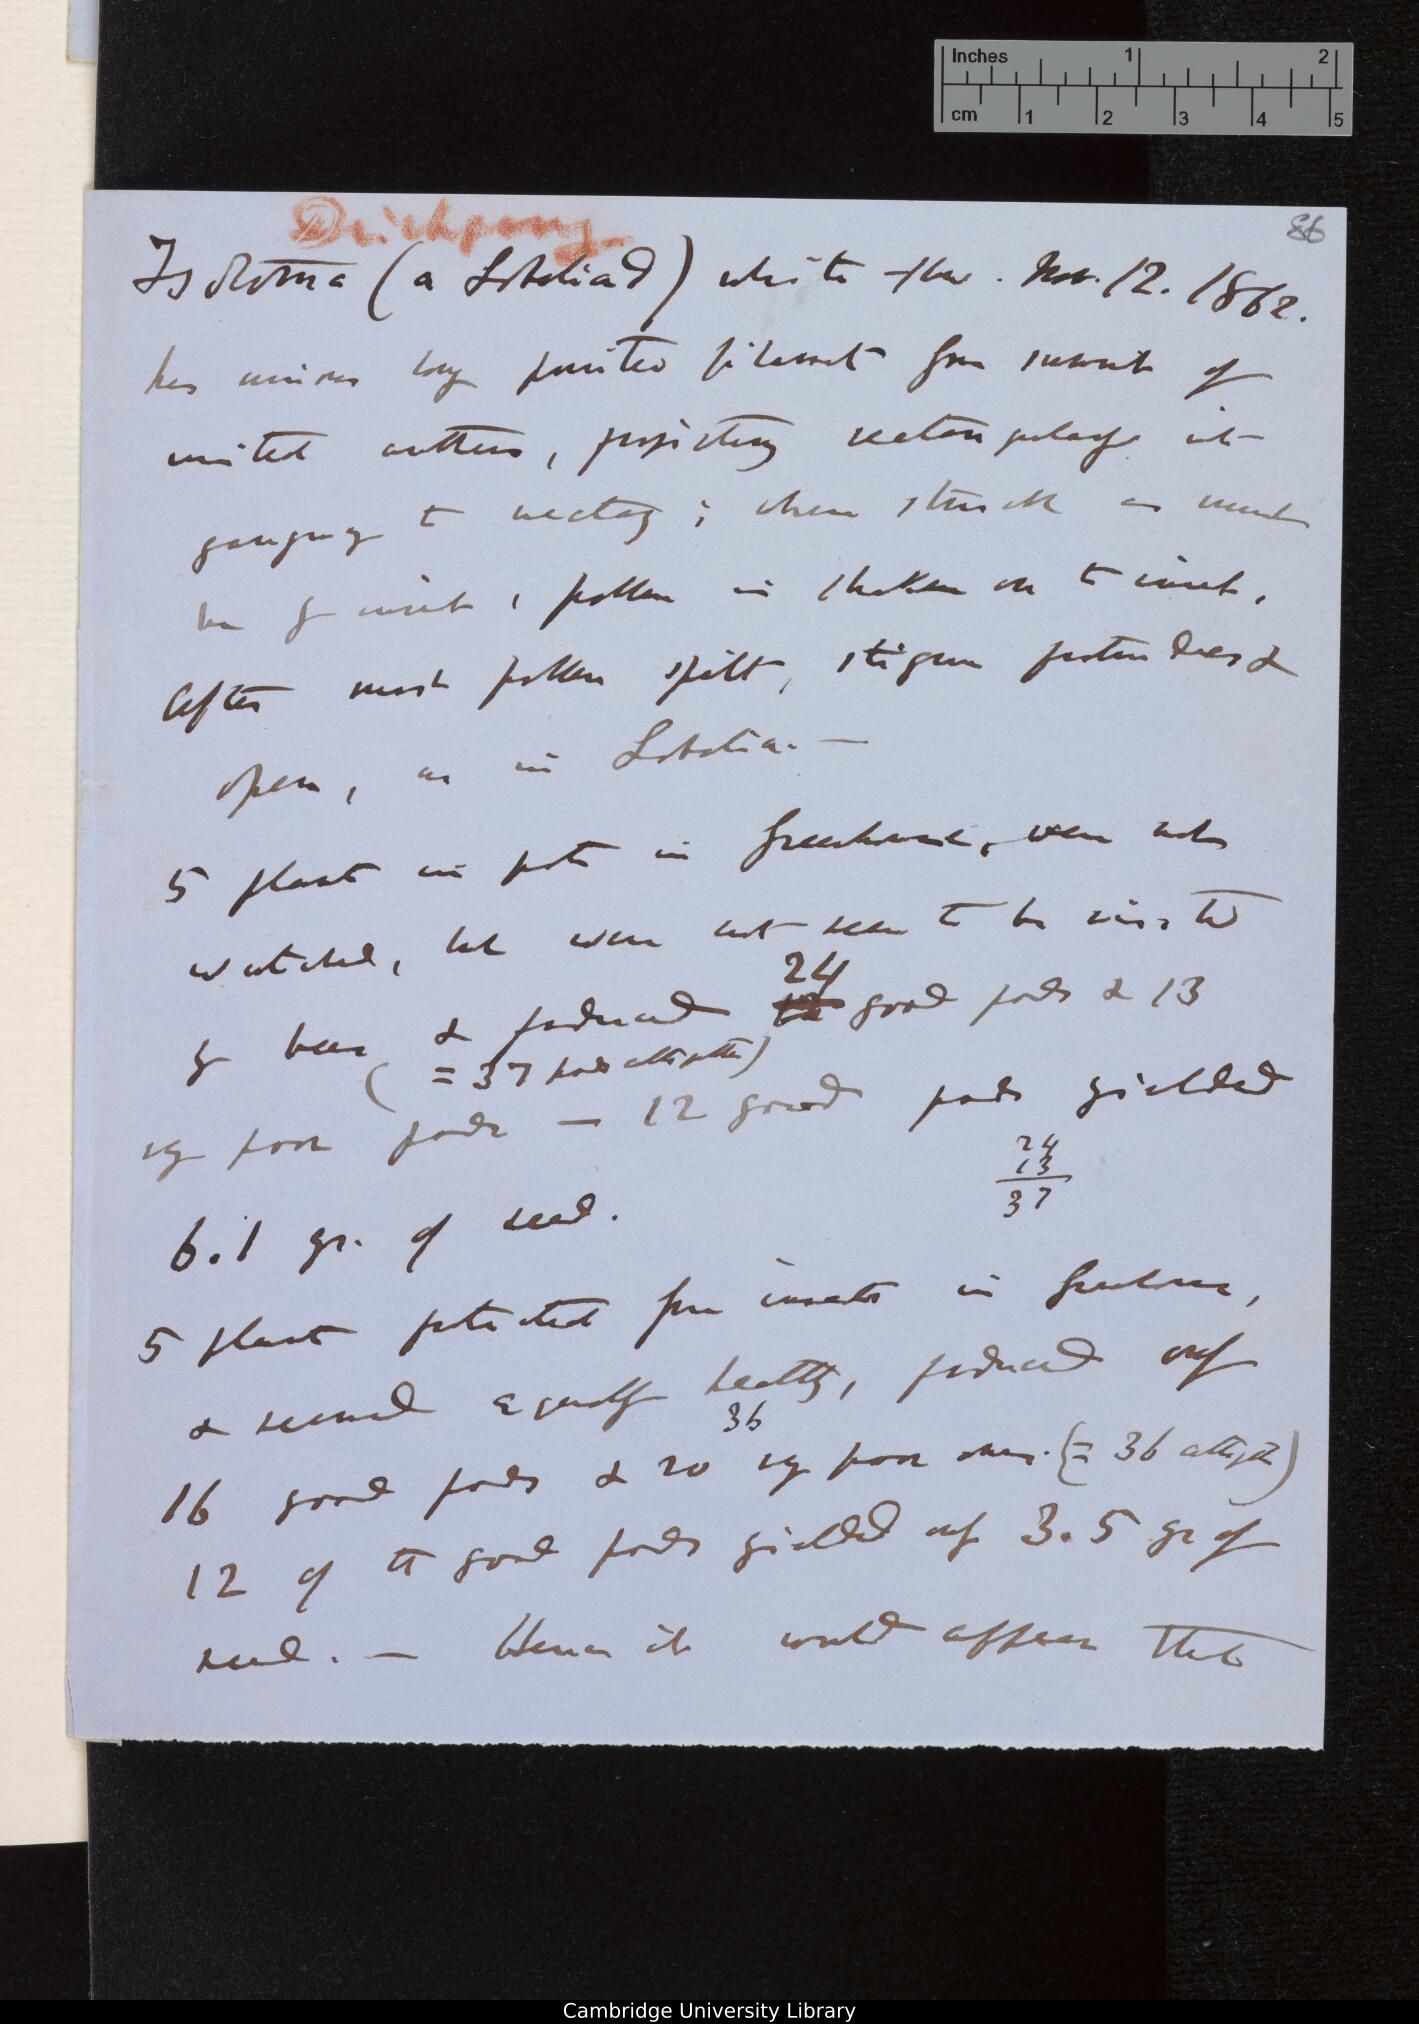 Inches 1 2
cm 1 2 3 4 5
86
Dichogamy
Isotoma (a Lobeliad) white flow. Nov. 12. 1862.
has long pointed filament from summit of
united anthers, projecting
to nectary; when struck as must
be by insect, pollen is shaken on to insect.
After most pollen spilt, stigma protrudes &
opens, as in Lobelia. —
5 plants in pots in Greenhouse, were not
watched, but were not seen to be visited
by bees & produced 24 good pods & 13
( = 37 pods altogether)
vy poor pods — 12 good pods yielded
24
13
37
6.1 gr. of seed.
5 plants protected from insects in Greenhouse,
& seemed equally healthy, produced only
36
16 good pods & 20 vy poor ones. (= 36 altogether)
12 of the good pods yielded only 3.5 gr of
seed. — Hence it would appear that
Cambridge University Library